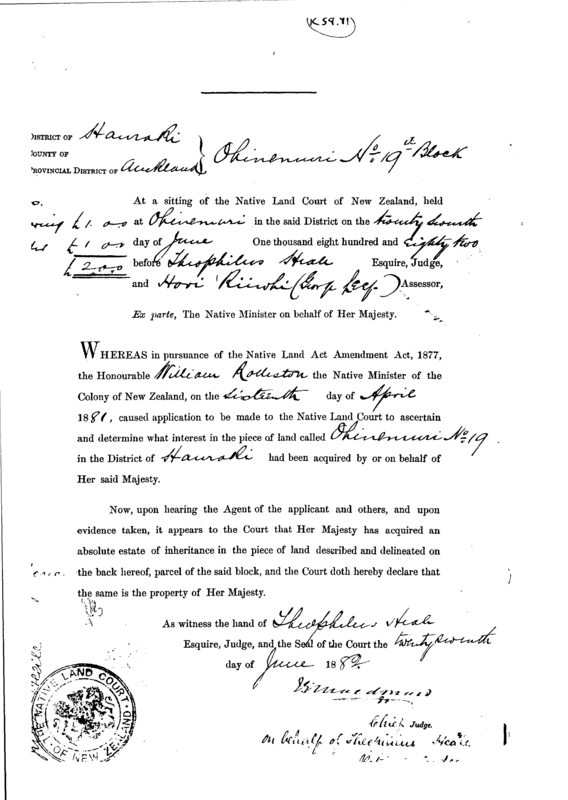 K 59.91
DISTRICT OF Hauraki
COUNTY OF
PROVINCIAL DISTRICT OF Auckland
Ohinemuri No 19th Block
At a sitting of the Native Land Court of New Zealand, held
£1.0.0 at Ohinemuri in the said District on the twenty seventh
£1.0.0 day of June One thousand eight hundred and Eighty two
£2.0.0 before Theophilus Heale Esquire, Judge,
and Hori Assessor,
Ex parte, The Native Minister on behalf of Her Majesty.
WHEREAS in pursuance of the Native Land Act Amendment Act, 1877,
the Honourable William Rolleston the Native Minister of the
Colony of New Zealand, on the Sixteenth day of April
1881, caused application to be made to the Native Land Court to ascertain
and determine what interest in the piece of land called Ohinemuri No 19
in the District of Hauraki had been acquired by or on behalf of
Her said Majesty.
Now, upon hearing the Agent of the applicant and others, and upon
evidence taken, it appears to the Court that Her Majesty has acquired an
absolute estate of inheritance in the piece of land described and delineated on
the back hereof, parcel of the said block, and the Court doth hereby declare that
the same is the property of Her Majesty.
As witness the hand of Theophilus Heale
Esquire, Judge, and the Seal of the Court the twenty seventh
day of June 1882
Chief Judge.
on behalf of Heale
NATIVE LAND COURT
OF NEW ZEALAND